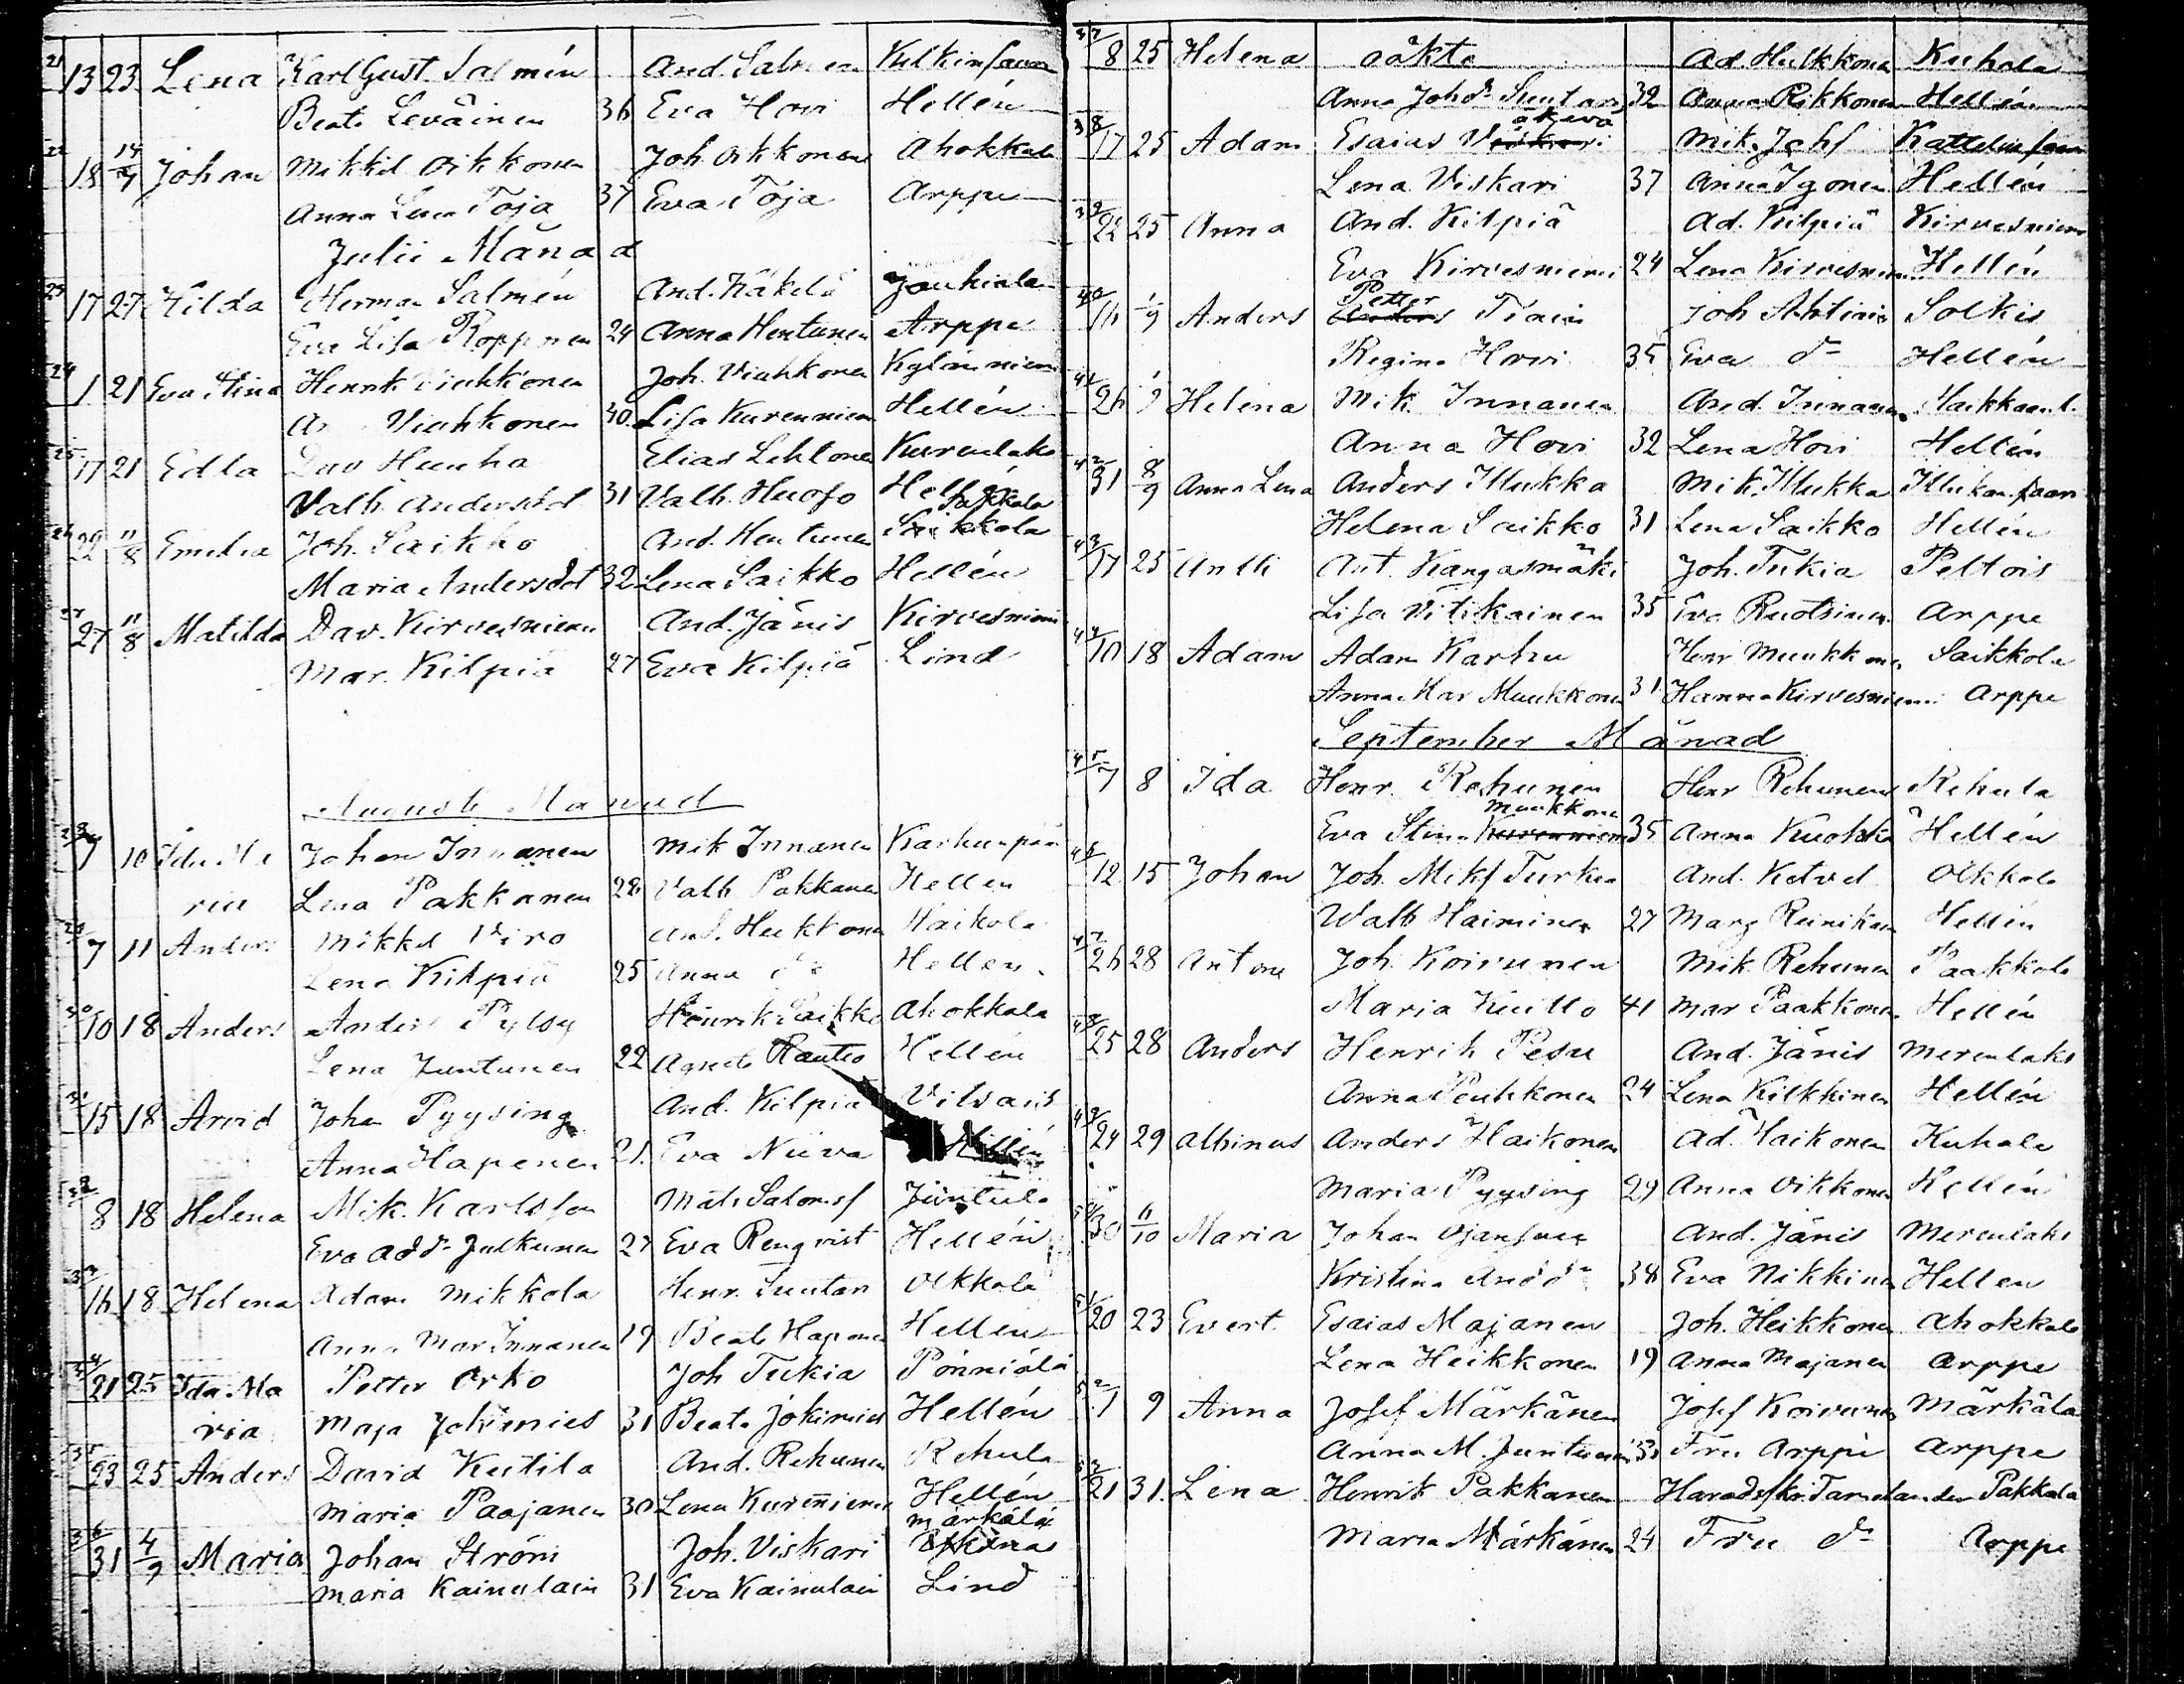 21 13 23 Lena Karl Gust. Salmén And. Salmen Kilkinsaari
Beata Leväinen 36 Eva Hovi Hellén
22 18 14/7 Johan Mikkel Oikkonen Joh. Oikkonen Ahokkala
Anna Lena Töjä 37 Eva Töjä Arppe
Julii Månad
23 17 27 Hilda Herman Salmén And. Käkelä Jouhiala
Eva Lisa Ropponen 24 Anna Hentunen Arppe
24 1 21 Eva Stina Henrik Viuhkonen Joh. Viuhkonen Kylänniemi
Viuhkonen 30 Lisa Kurenniem Hellén
25 17 21 Edla Dav Huuha Elias Lehtonen Kurenlaks
Valb. Andersdot 31 Valb. Huofo Hellén
26 29 11/8 Emelia Joh. Saikko And. Hentunen Saikkola
Maria Andersdot 32 Lena Saikko Hellén
27 27 11/8 Matilda Dav. Kirvesniemi And. Jänis Kirvesniemi
Mar. Kilpiä 27 Eva Kilpiä Lind
Augusti Månad
28 7 10 Ida Ma Johan Innanen Mik Innanen Karhunpää
ria Lena Pakkanen 28 Valb Pakkanen Hellen
29 7 11 Anders Mikkel Viro And. Heikkonen Haikola
Lena Kilpiä 25 Anna do Hellen
30 10 18 Anders Anders Pylsy Henrik Saikko Ahokkala
Lena Juntunen 22 Agneta Rautio Hellén
31 15 18 Arvid Johan Pyysing And. Kilpiä Vilsais
Anna Hapenen 21. Eva Niiva Hellén
32 8 18 Helena Mik. Karlsson Mats Saloms Juntula
Eva Add: Julkunen 27 Eva Renqvist Hellén
33 16 18 Helena Adam Mikkola Henr. Suntar Olkkola
Anna Mar Innanen 19 Beata Haponen Hellen
34 21 25 Ida Ma Petter Orko Joh Tukia Pönniälä
ria Maja Jokimies 31 Beata Jokimies Hellén
35 23 25 Anders David Kutila And. Rehunen Rehula
Maria Paajanen 30 Lena Kurenniemi Hellén
Märkälä
36 31 4/9 Maria Johan Ström Joh. Viskari
Maria Kainulain 31 Eva Kainulain Lind
37 8 25 Helena oäkta Ad. Hulkkonen Kuhala
Anna Johdr Suntar 32 Anna Rikkonen Hellén
38 17 25 Adam Esaias Viskari Mik. Johs Kattelussaari
Lena Viskari 37 Anna Igonen Hellén
39 22 25 Anna And. Kilpiä Ad. Kilpiä Kirvesniem
Eva Kirvesniemi 24 Lena Kirvesniem Hellén
Petter
40 16 1/9 Anders Anders Tiain Joh Ahtiain Solkis
Regina Hovi 35 Eva do Hellén
41 26 1/9 Helena Mik. Innanen And. Innanen
Anna Hovi 32 Lena Hovi Hellén
42 31 8/9 Anna Lena Anders Illukka Mik. Illukka Illukansaari
Helena Saikko 31 Lena Saikko Hellén
43 17 25 Antti Ant. Kangasmäki Joh. Tukia Peltois
Lisa Vitikainen 35 Eva Ruotsinen Arppe
44 10 18 Adam Adam Karhu Henr Muukkonen Saikkola
Anna Mar Muukkonen 31 Hanna Kirvesniemi Arppe
September Månad
45 7 8 Ida Henr. Rehunen Henr Rehunen Rehula
Muukkonen
Eva Stina Kurenniemi 35 Anna Kuokka Hellén
46 12 15 Johan Joh. Miks Turkia And. Ketvel Olkkola
Walb Haiminen 27 Marg Reinikain Hellén
47 26 28 Anton Joh. Koivunen Mik. Rehunen Paakkola
Maria Kuitto 41 Mar Paakkonen Hellén
48 25 28 Anders Henrik Pesu And. Jänis Merenlaks
Anna Peuhkonen 24 Lena Kilkkinen Hellén
49 24 29 Albinus Anders Haikonen Ad. Haikonen Kuhala
Maria Pyysing 29 Anna Oikkonen Hellén
50 30 6/10 Maria Johan Ojansuu And. Jänis Merenlaks
Kristina Andd: 38 Eva Nikkinen Hellen
51 20 23 Evert Esaias Majanen Joh. Heikkonen Ahokkala
Lena Heikkonen 19 Anna Majanen Arppe
52 1 9 Anna Josef Märkänen Josef Koivunen Märkälä
Anna M. Juntunen 33 Fru Arppe Arppe
53 21 31. Lena Henrik Pakkanen Haradsskr. Tamelander Pakkala
Maria Märkänen 24 Fru do Arppe